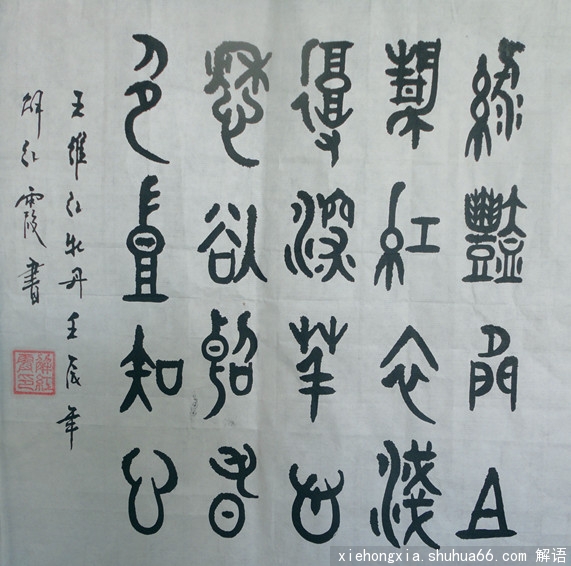 綠艷閒且
靜紅衣淺
復深華心
愁欲斷春
色豈知心
王維红牡丹壬辰年
解红霞書
解紅霞印
xiehongxia.shuhua66.com 解语